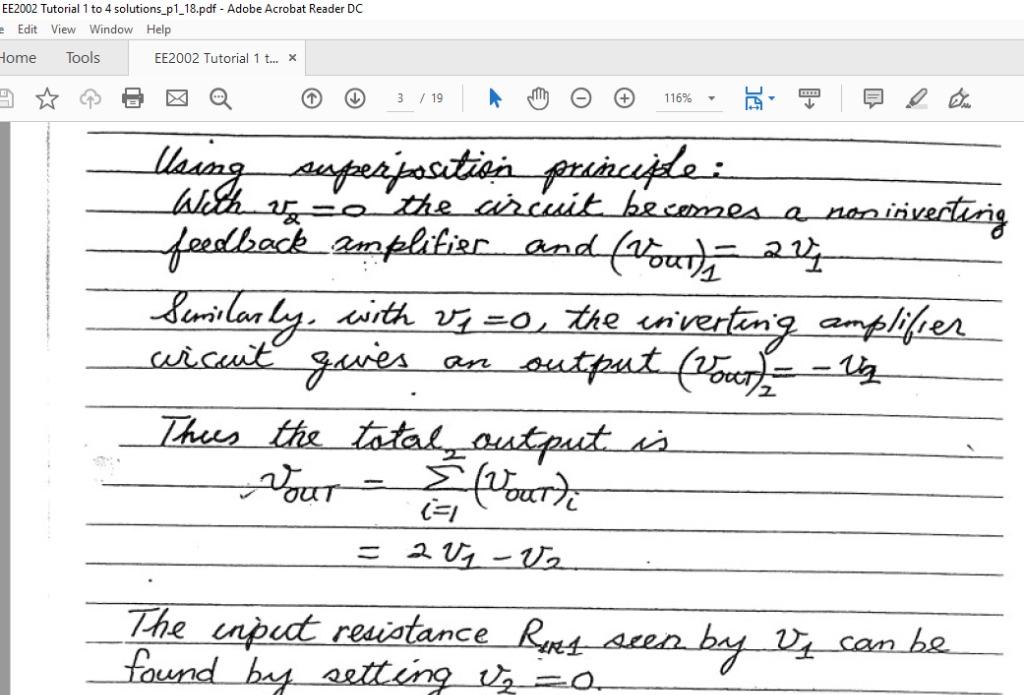 EE2002 Tutorial 1 to 4 solutions_p1_18.pdf - Adobe Acrobat Reader DC
e Edit View Window Help
Home Tools EE2002 Tutorial 1 t... ×
3 / 19 116%
Using superposition principle:
With v₂=0 the circuit becomes a noninverting
feedback amplifier and (v_OUT)₁ = 2v₁
Similarly. with v₁=0, the inverting amplifier
circuit gives an output (v_OUT)₂ = -v₂
Thus the total output is
v_OUT = Σ_{i=1}^{2} (v_OUT)_i
= 2v₁ - v₂
The input resistance R_IN1 seen by v₁ can be
found by setting v₂ = 0.